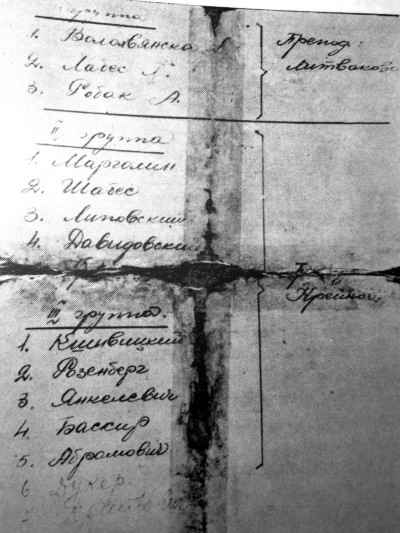 группа
1. Волохвянско
2. Лабес Г.
3. Робак Л.
Препод:
Литваков
II группа
1. Марголин
2. Шабес
3. Липовский
4. Давидовский
Крейном
III группа.
1. Кшивицкий
2. Розенберг
3. Янкелевич
4. Бассир
5. Абрамович
6 Дукер.